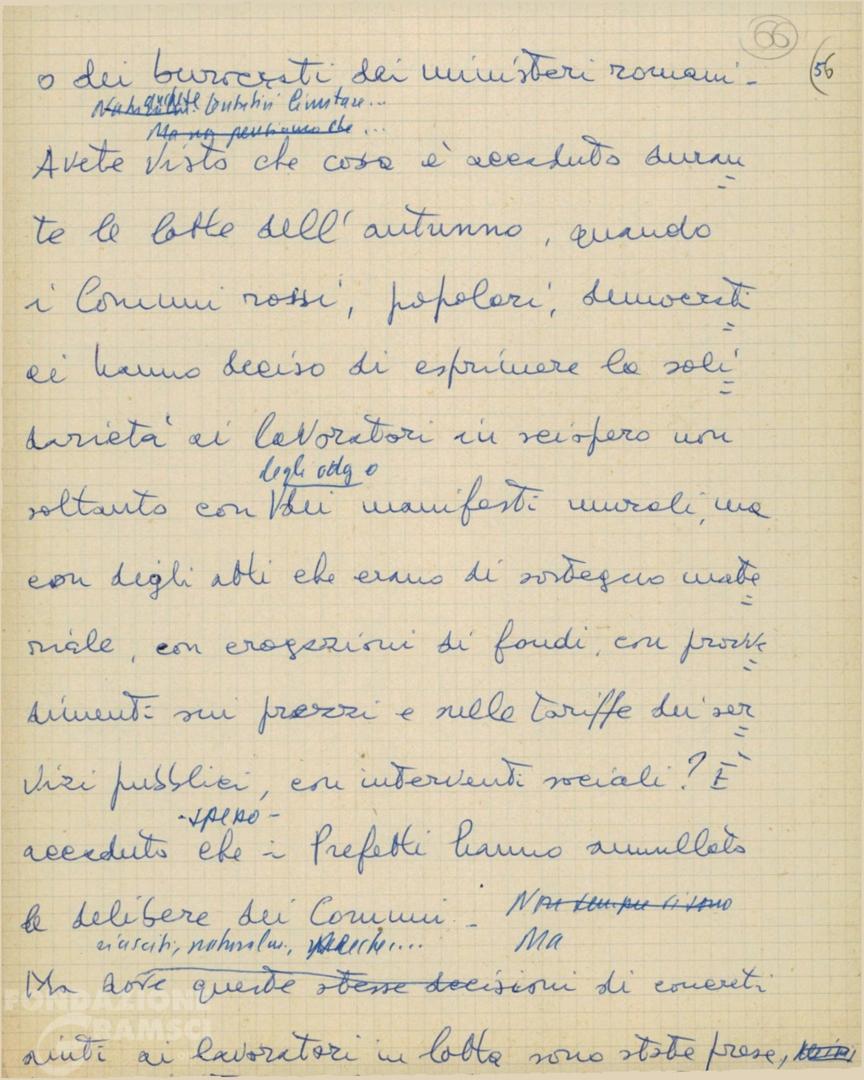 66
56
o dei burocrati dei ministeri romani -
anche tentativi limitare...
Ma noi pensiamo che...
Avete visto che cosa è accaduto duran
te le lotte dell'autunno, quando
i Comuni rossi, popolari, democrati
ci hanno deciso di esprimere la soli
darietà ai lavoratori in sciopero non
degli odg o
soltanto con dei manifesti murali, ma
con degli atti che erano di sostegno mate
riale, con erogazioni di fondi, con provve
dimenti sui prezzi e nelle tariffe dei ser
vizi pubblici, con interventi sociali? È
- spesso -
accaduto che i Prefetti hanno annullato
le delibere dei Comuni - Non sempre ci sono
riusciti, naturalm., perché... Ma
Ma dove queste stesse decisioni di concreti
aiuti ai lavoratori in lotta sono state prese,
FONDAZIONE
GRAMSCI